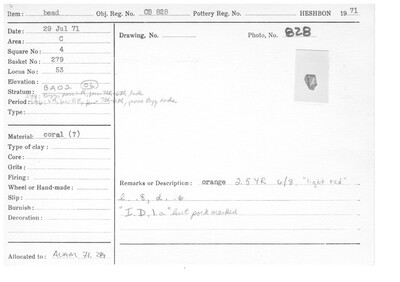 Item: bead Obj. Reg. No. OB 828 Pottery Reg. No. HESHBON 1971
Date: 29 Jul 71 Drawing, No. Photo, No. 828
Area: C
Square No: 4
Basket No: 279
Locus No: 53
Elevation:
Stratum: BA02
Period:
Type:
Material: coral (?)
Type of clay:
Core:
Grits:
Firing:
Wheel or Hand-made: Remarks or Description: orange 2.5YR 6/8, "light red"
Slip: h. .8, d. .6
Burnish: "I.D.1.a" but pock marked
Decoration:
Allocated to: AUAM 71.